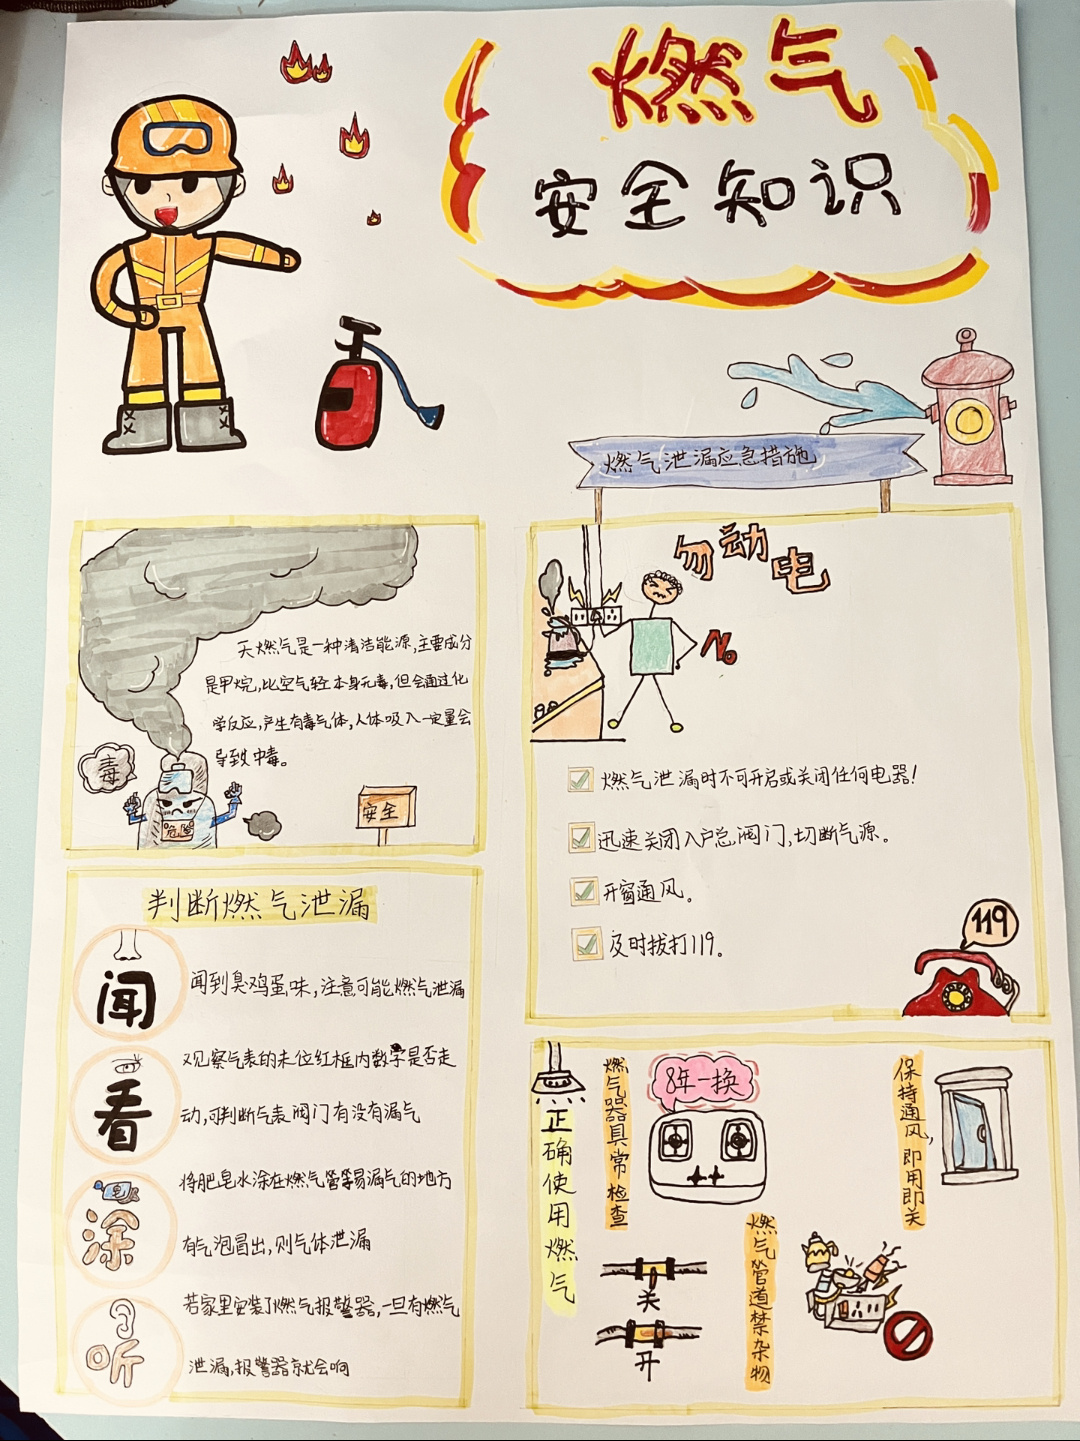 燃气
安全知识
燃气泄漏应急措施
天燃气是一种清洁能源,主要成分
是甲烷,比空气轻本身无毒,但会通过化
学反应,产生有毒气体,人体吸入一定量会
导致中毒。
毒
危险
安全
勿动电
No
燃气泄漏时不可开启或关闭任何电器!
迅速关闭入户总阀门,切断气源。
开窗通风。
及时拔打119。
119
判断燃气泄漏
闻
闻到臭鸡蛋味,注意可能燃气泄漏
看
观察气表的末位红框内数字是否走
动,可判断气表阀门有没有漏气
皂
涂
将肥皂水涂在燃气管等易漏气的地方
有气泡冒出,则气体泄漏
听
若家里安装了燃气报警器,一旦有燃气
泄漏,报警器就会响
正确使用燃气
燃气器具常检查
8年一换
保持通风,即用即关
关
开
燃气管道禁杂物